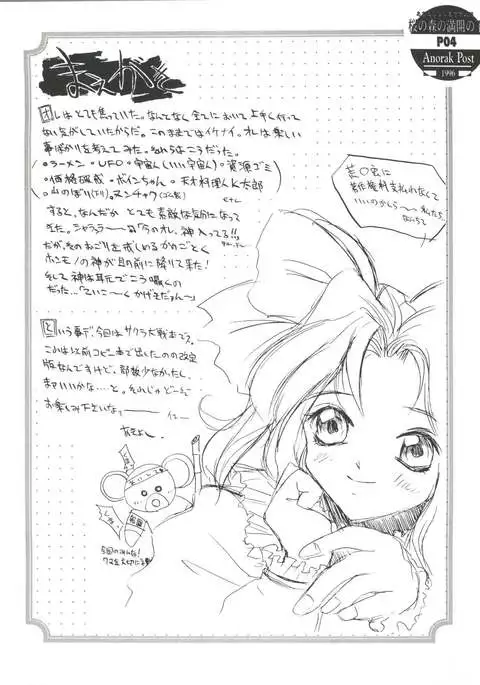 桜の森の満開の下
P04
Anorak Post
1996
まえがき
オレはとても焦っていた。なんとなく全てにおいて上手く行って
ない気がしていたからだ。このままではイケナイ。オレは楽しい
事ばかりを考えてみた。それらはこうだった。
・ラーメン・UFO・宇宙人(いい宇宙人)・資源ゴミ
・価格破壊・ボインちゃん・天才料理人K太郎
・山のぼり(下り)・ヌンチャク(ゴム製)
すると、なんだか とても素敵な気分になって
きた。シャララ〜 「今のオレ、神入ってる!!」
だが、そのおごりを戒しめるかのごとく
ホンモノの神が目の前に降りて来た!
そして神は耳元でこう囁くの
だった…「ていこ〜くかげきだぁん〜」
という事デ、今回はサクラ大戦本でス。
これは以前コピー本で出したのの改定
版なんですけど、部数少なかったし、
まァいいかな…と。それじゃどーぞ
お楽しみ下さいなっ
著作権料支払れなくて
いいのかしら〜
今回のみんな!
クマを大切にネ